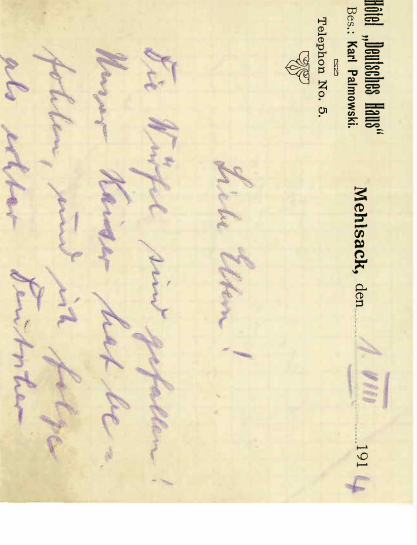 Hôtel „Deutsches Haus“
Bes.: Karl Palmowski.
Telephon No. 5.
Mehlsack, den 1. VIII 1914
Liebe Eltern!
Die Würfel sind gefallen!
Unser Kaiser hat be=
fohlen, und ich folge
als echter Deutscher